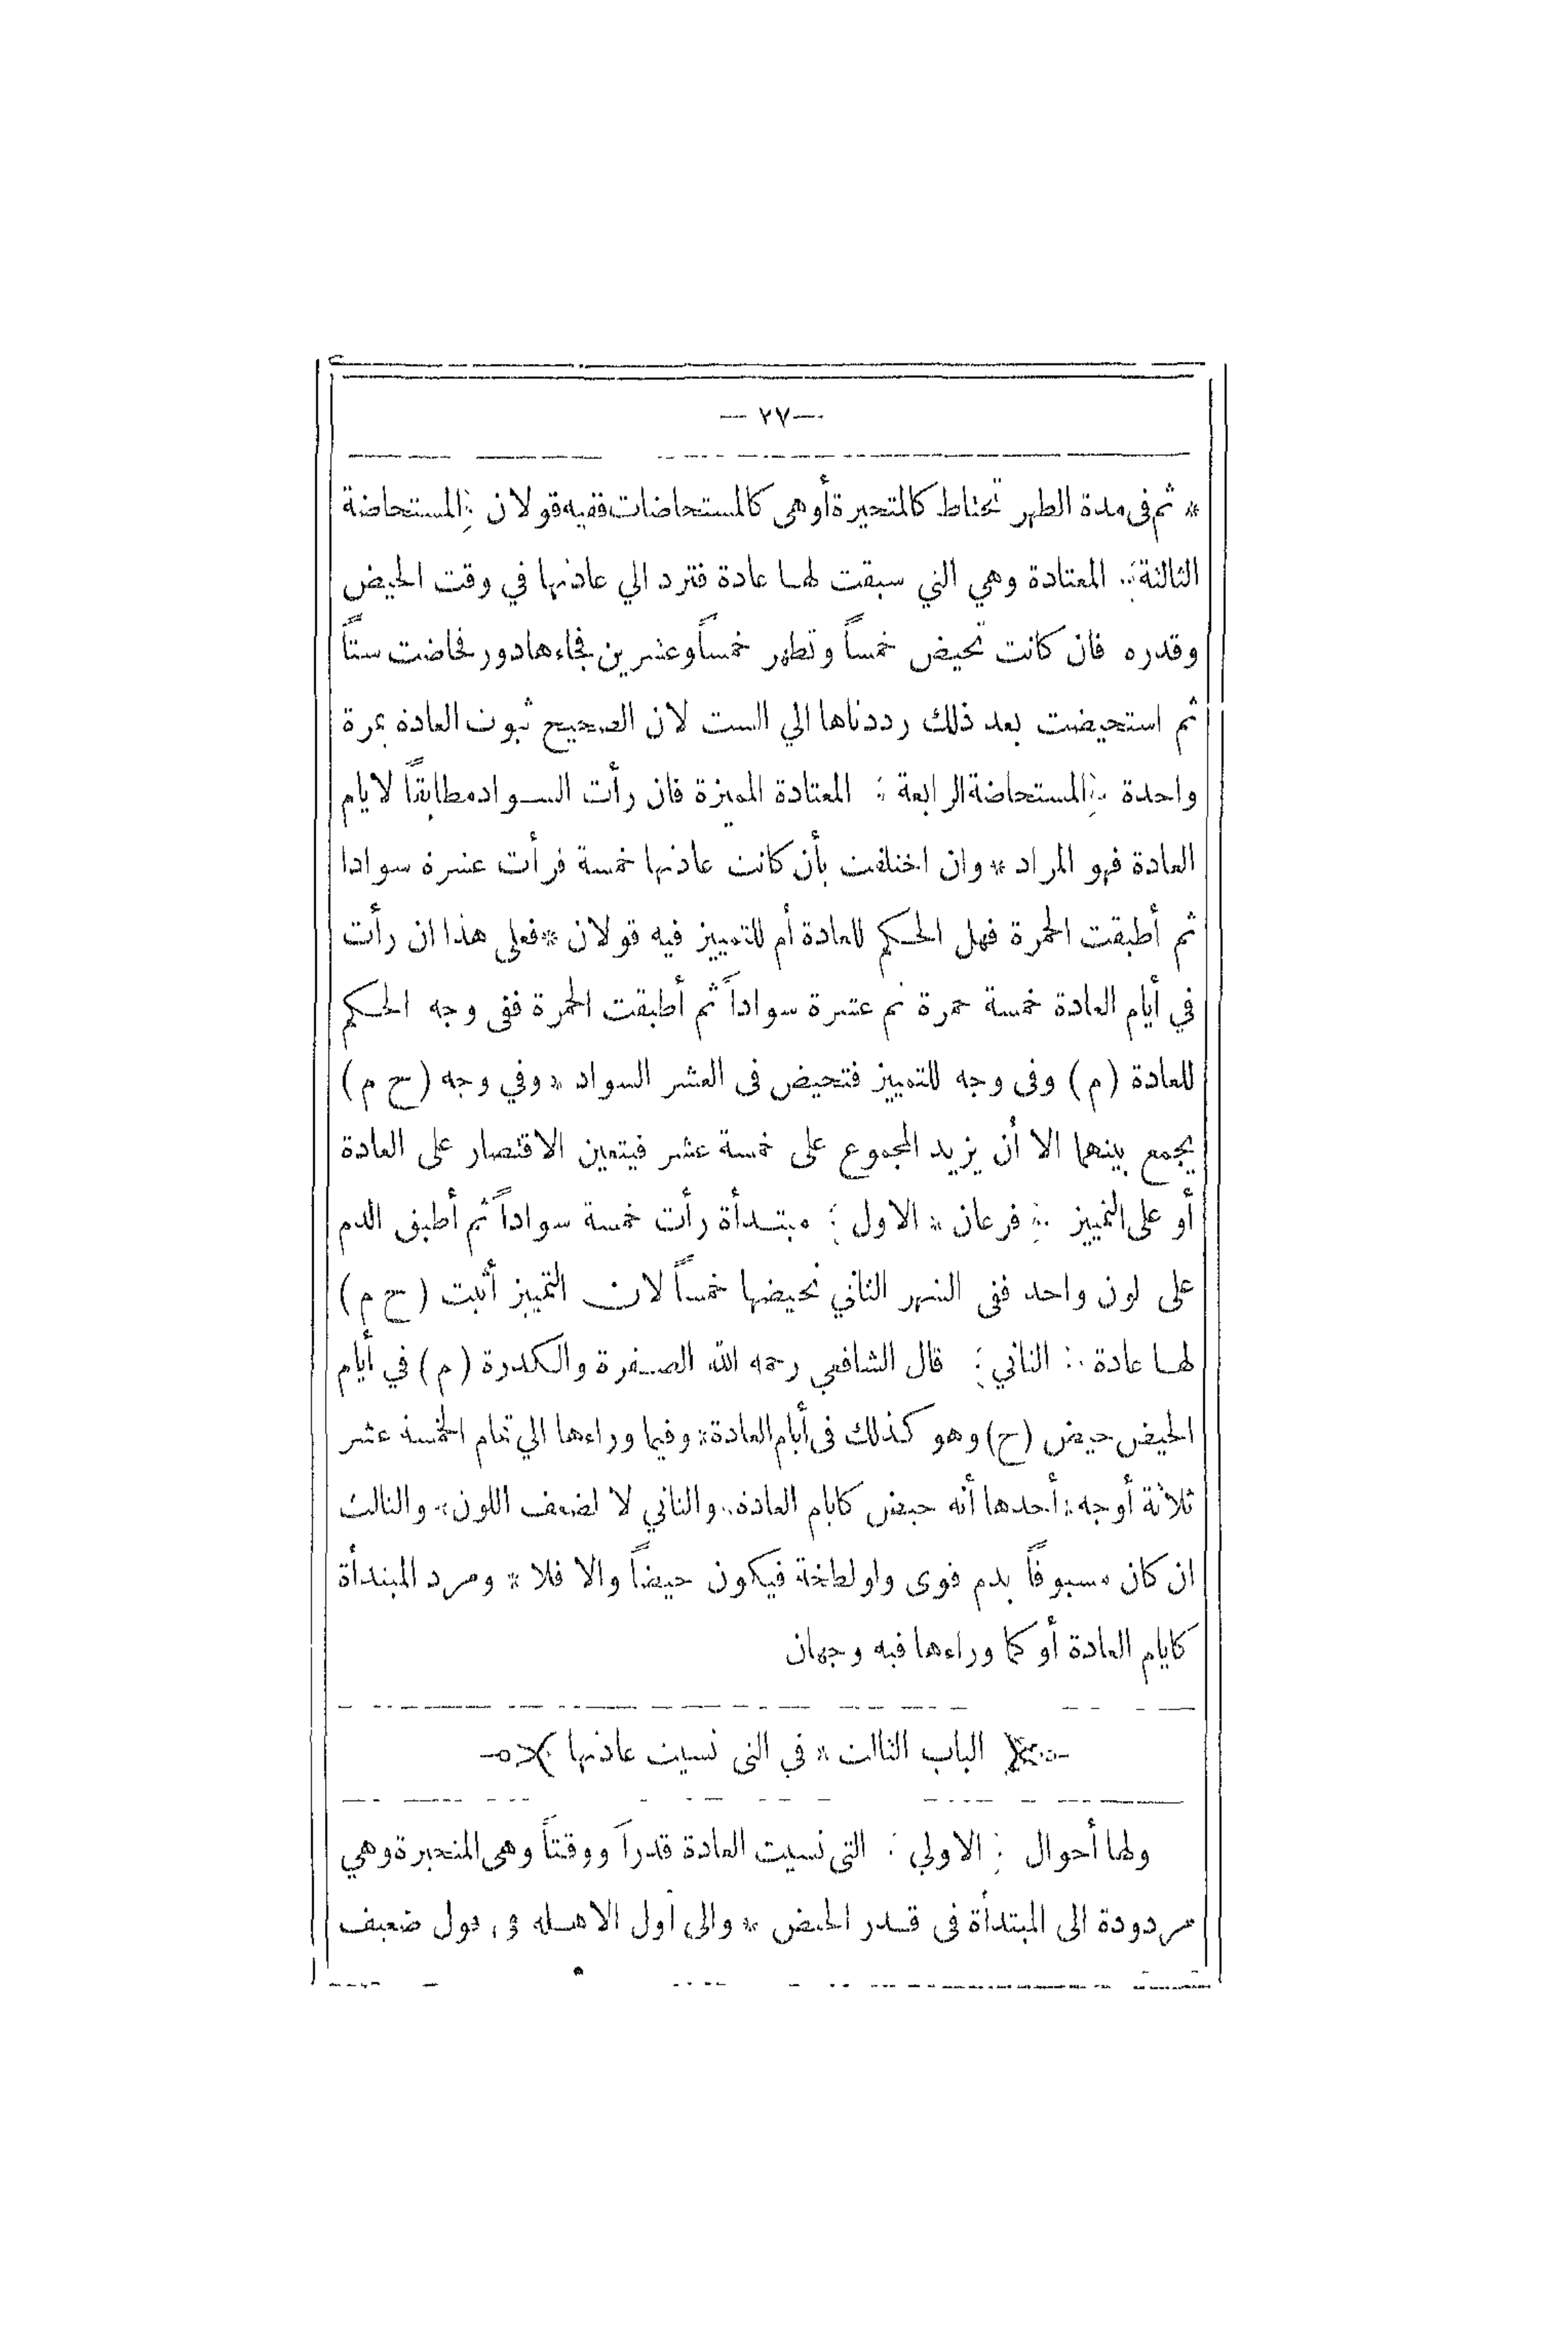 — ٢٧ —
* ثم في مدة الطهر تحتاط كالمتحيرة أوهى كالمستحاضات ففيه قولان ⁘ المستحاضة
الثالثة ⁘ المعتادة وهي التي سبقت لها عادة فترد الي عادتها في وقت الحيض
وقدره فان كانت تحيض خمساً وتطهر خمساً وعشرين فجاءها دور فحاضت ستاً
ثم استحيضت بعد ذلك رددناها الي الست لان الصحيح ثبوت العادة بمرة
واحدة ⁘ المستحاضة الرابعة ⁘ المعتادة المميزة فان رأت السواد مطابقاً لايام
العادة فهو المراد * وان اختلفت بأن كانت عادتها خمسة فرأت عشرة سوادا
ثم أطبقت الحمرة فهل الحكم للعادة أم للتمييز فيه قولان * فعلى هذا ان رأت
في أيام العادة خمسة حمرة ثم عشرة سواداً ثم أطبقت الحمرة ففى وجه الحكم
للعادة (م) وفى وجه للتمييز فتحيض فى العشر السواد * وفي وجه (ح م)
يجمع بينهما الا أن يزيد المجموع على خمسة عشر فيتعين الاقتصار على العادة
أو على التمييز ⁘ فرعان * الاول ⁘ مبتدأة رأت خمسة سواداً ثم أطبق الدم
على لون واحد ففى الشهر الثاني نحيضها خمساً لان التمييز أثبت (ح م)
لها عادة ⁘ الثاني ⁘ قال الشافعي رحمه الله الصفرة والكدرة (م) في أيام
الحيض حيض (ح) وهو كذلك فى أيام العادة * وفيما وراءها الي تمام الخمسة عشر
ثلاثة أوجه * أحدها أنه حيض كايام العادة * والثاني لا لضعف اللون * والثالث
ان كان مسبوقاً بدم قوى ولو لطخة فيكون حيضاً والا فلا * ومرد المبتدأة
كايام العادة أو كما وراءها فيه وجهان
الباب الثالث * في التى نسيت عادتها
ولها أحوال ⁘ الاولي ⁘ التى نسيت العادة قدراً ووقتاً وهى المتحيرة وهي
مردودة الى المبتدأة فى قدر الحيض * والى أول الاهلة في قول ضعيف